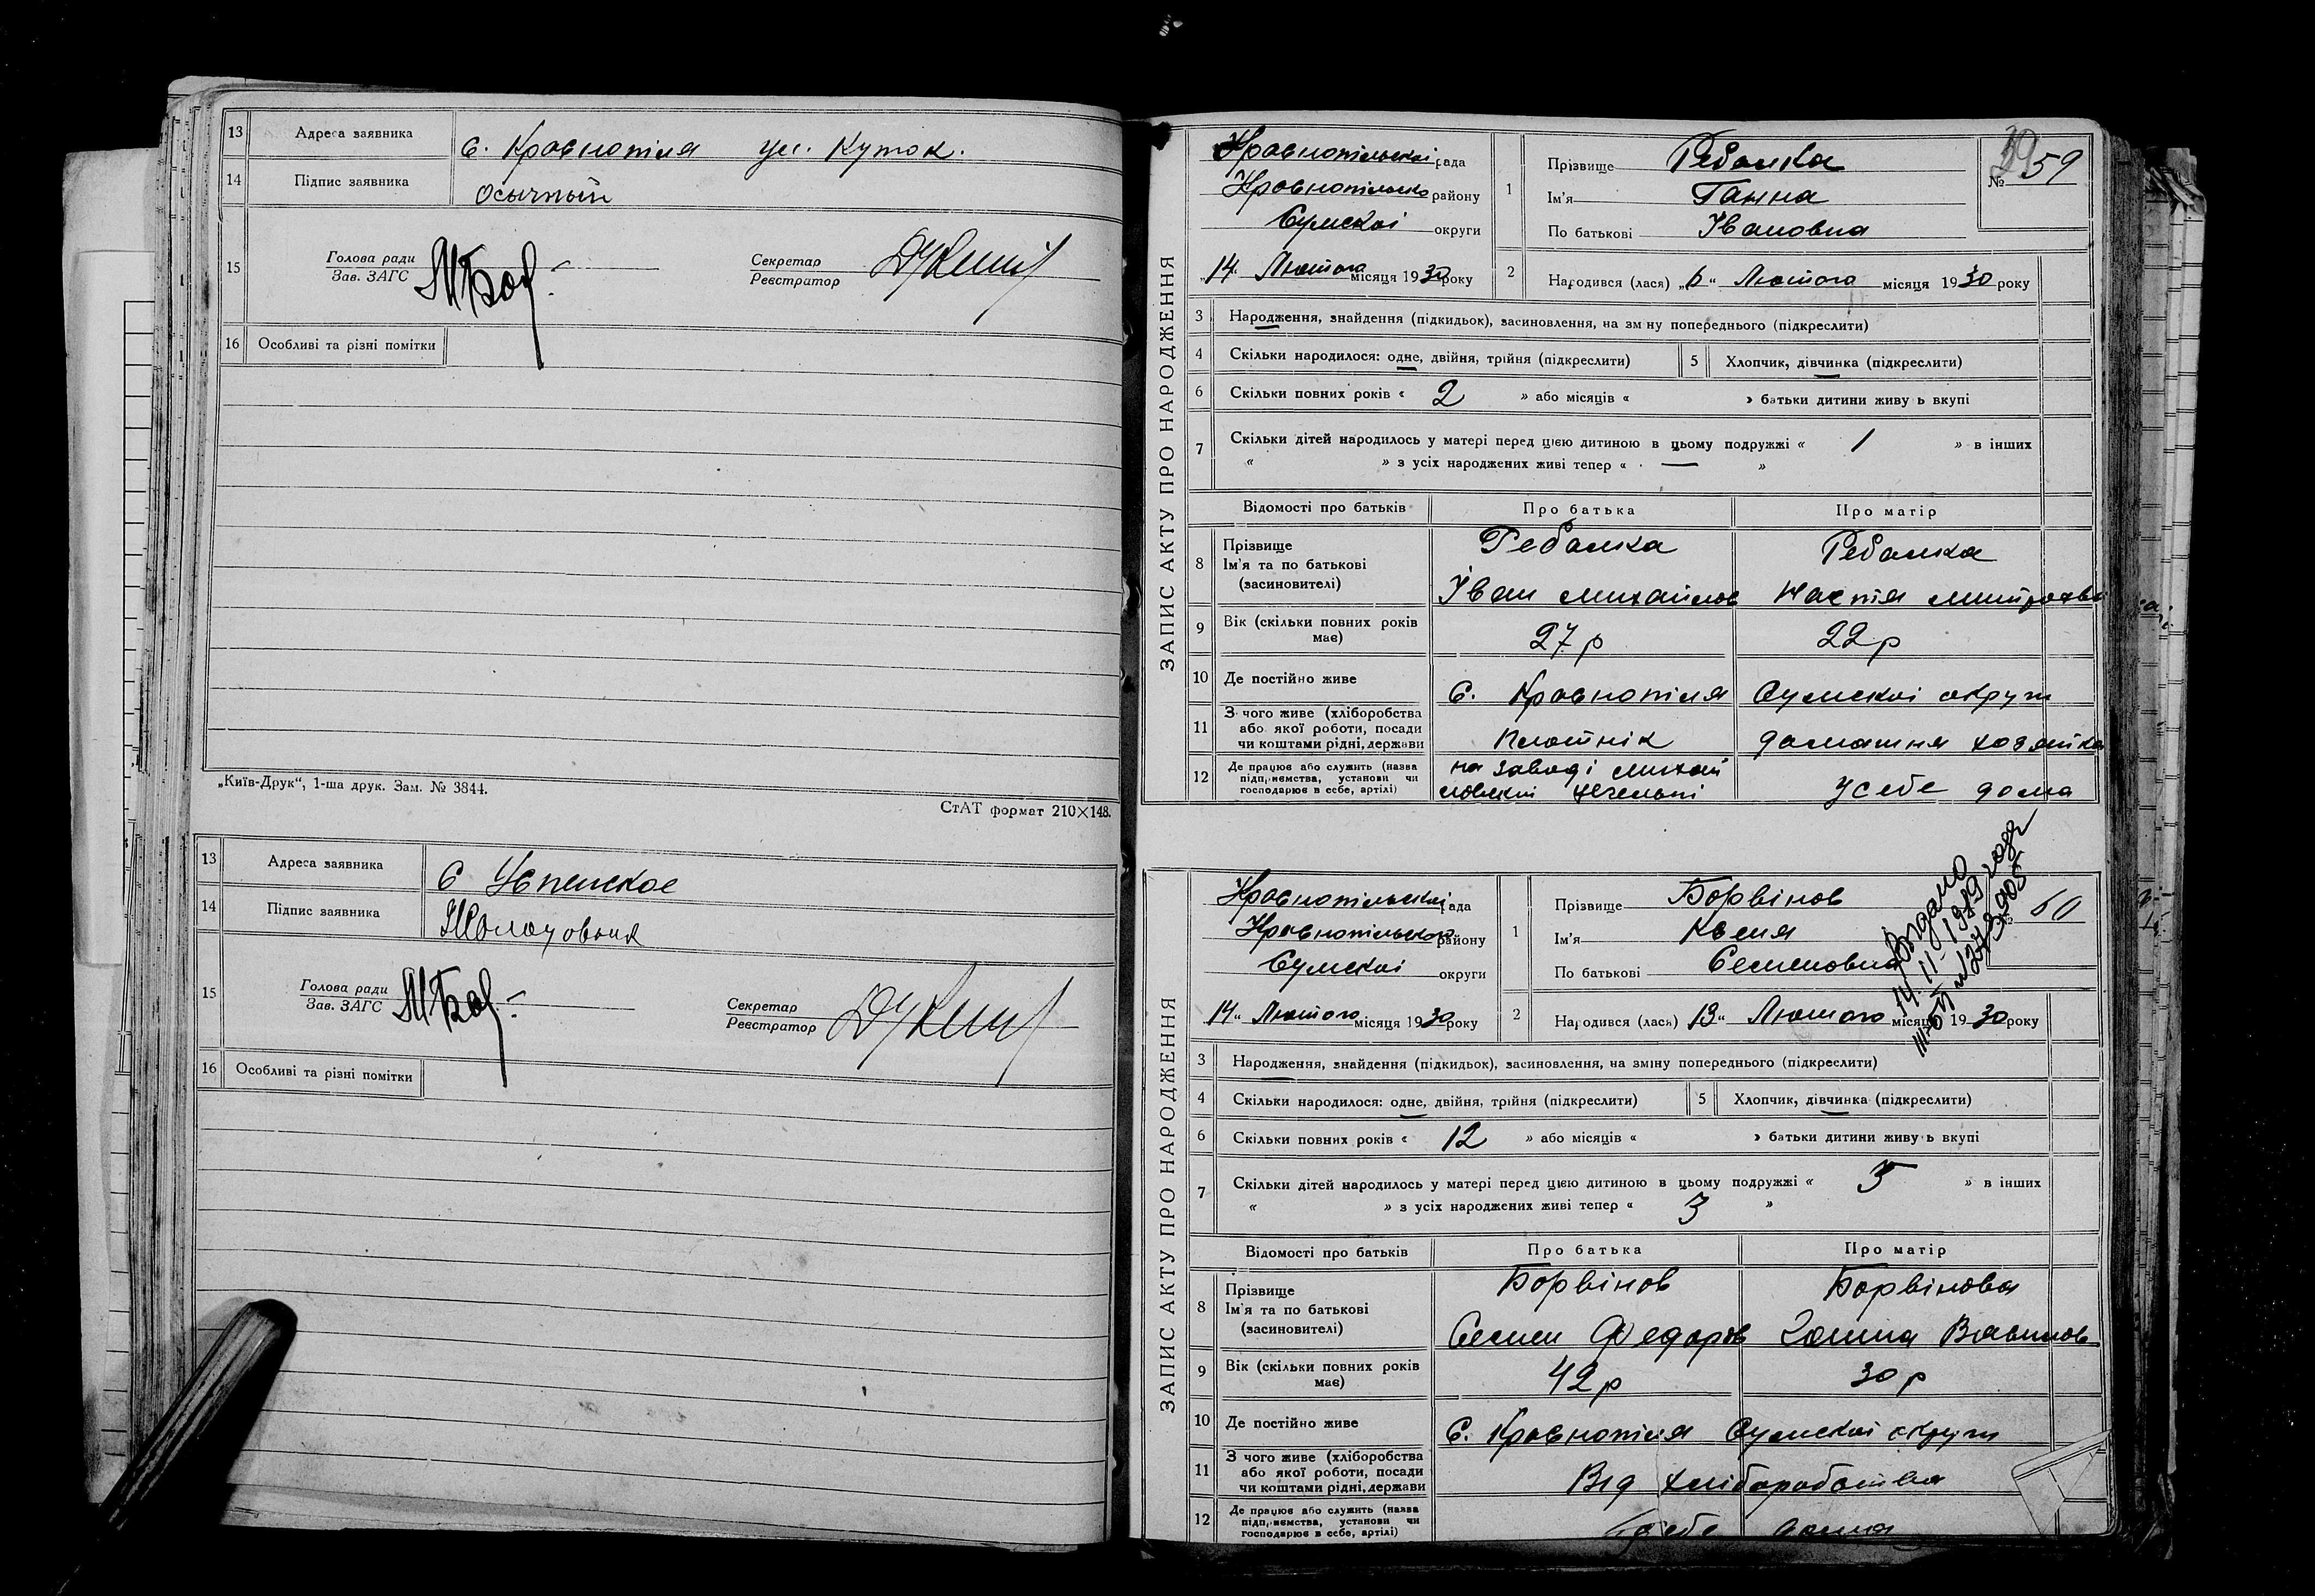 13 Адреса заявника С. Краснопілля ул. Куток.
14 Підпис заявника Осычный
15 Голова ради
Зав. ЗАГС
Секретар
Реєстратор
16 Особливі та різні помітки
„Київ-Друк“, 1-ша друк. Зам. № 3844.
СтАТ формат 210×148.
13 Адреса заявника С Успенское
14 Підпис заявника
15 Голова ради
Зав. ЗАГС
Секретар
Реєстратор
16 Особливі та різні помітки
ЗАПИС АКТУ ПРО НАРОДЖЕННЯ
Краснопільської рада
Краснопільско району
Сумскоі округи
„14 Лютого місяця 1930 року
1 Прізвище Ребалка
Ім'я Ганна
По батькові Івановна
№ 59
2 Народився (лася) „6“ Лютого місяця 1930 року
3 Народження, знайдення (підкидьок), засиновлення, на зм ну попереднього (підкреслити)
4 Скільки народилося: одне, двійня, трійня (підкреслити) 5 Хлопчик, дівчинка (підкреслити)
6 Скільки повних років « 2 » або місяців « » батьки дитини живу ь вкупі
7 Скільки дітей народилось у матері перед цією дитиною в цьому подружжі « 1 » в інших
« » з усіх народжених живі тепер « — »
Відомості про батьків Про батька Про матір
8 Прізвище
Ім'я та по батькові
(засиновителі)
Ребалка Ребалка
Іван Михайлов Настя
9 Вік (скільки повних років
має)
27 р 22 р
10 Де постійно живе С. Краснопілля Сумскоі округи
11 З чого живе (хліборобства
або якої роботи, посади
чи коштами рідні, держави
Плотнік домашня хозяйка
12 Де працює або служить (назва
підприємства, установи чи
господарює в себе, артілі)
на заводі
У себе дома
ЗАПИС АКТУ ПРО НАРОДЖЕННЯ
Краснопільської рада
Краснопільского району
Сумскоі округи
14“ Лютого місяця 1930 року
1 Прізвище Борвінов
Ім'я
По батькові Семеновна
№ 60
2 Народився (лася) 13“ Лютого місяця 1930 року
3 Народження, знайдення (підкидьок), засиновлення, на зміну попереднього (підкреслити)
4 Скільки народилося: одне, двійня, трійня (підкреслити) 5 Хлопчик, дівчинка (підкреслити)
6 Скільки повних років « 12 » або місяців « » батьки дитини живу ь вкупі
7 Скільки дітей народилось у матері перед цією дитиною в цьому подружжі « 5 » в інших
« » з усіх народжених живі тепер « 3 »
Відомості про батьків Про батька Про матір
8 Прізвище
Ім'я та по батькові
(засиновителі)
Борвінов Борвінова
Семен Федоров
9 Вік (скільки повних років
має)
42 р 30 р
10 Де постійно живе С. Краснопілля Сумскоі округи
11 З чого живе (хліборобства
або якої роботи, посади
чи коштами рідні, держави
Від хліборобства
12 Де працює або служить (назва
підприємства, установи чи
господарює в себе, артілі)
У себе дома